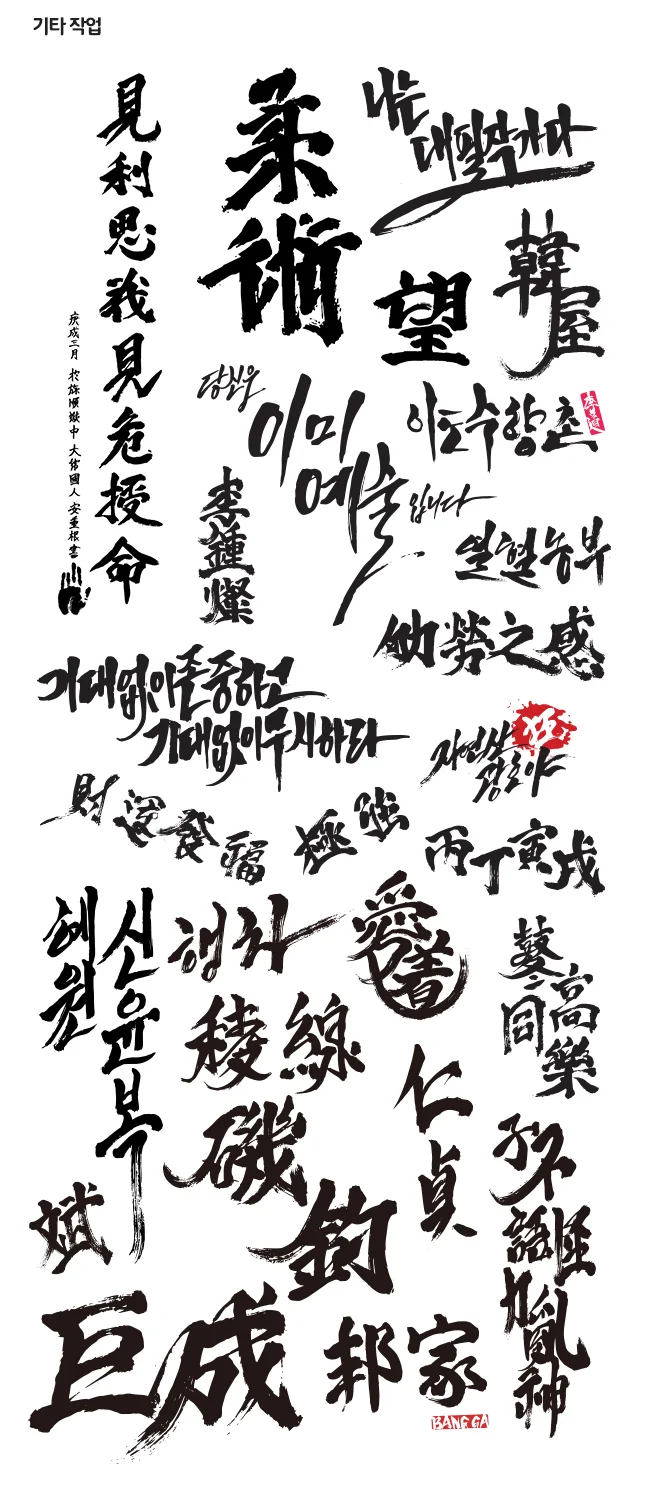 기타 작업
見利思義見危授命
庚戌三月 於旅順獄中 大韓國人 安重根書
柔術
나는
대필작가다
望
韓屋
당신은
이미
예술
입니다
이도수향촌
李鍾燦
열혈농부
劬勞之感
기대없이존중하고
기대없이무시하라
자연산
광도야
狂
財運發福
極強
丙丁寅戌
혜원
신윤복
행차
愛着
稜線
磯
釣
仁貞
藝同
高樂
子不語怪力亂神
斌
巨成
邦家
BANG GA